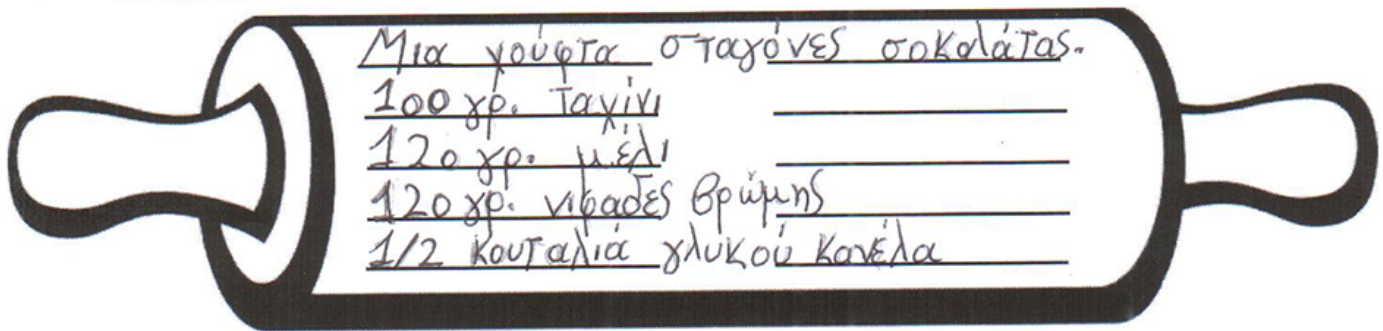 Μια χούφτα σταγόνες σοκολάτας.
100 γρ. ταχίνι
120 γρ. μέλι
120 γρ. νιφάδες βρώμης
1/2 κουταλιά γλυκού κανέλα